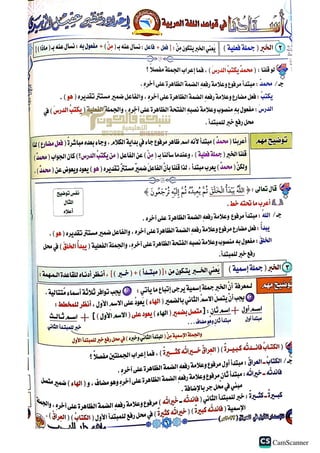 أستاذنا في قواعد اللغة العربية
② الخبر ( جملة فعلية ) يعني الخبر يتكون من ( فعل + فاعل : نسأل عنه بـ ( من ) + مفعول به : نسأل عنه بـ ( ماذا ) )
لو قلنا : ( محمدٌ يكتبُ الدرسَ ) ، فما إعراب الجملة مفصلاً ؟
جـ / محمدٌ : مبتدأ مرفوع وعلامة رفعه الضمة الظاهرة على آخره .
يكتبُ : فعل مضارع وعلامة رفعه الضمة الظاهرة على آخره ، والفاعل ضمير مستتر تقديره ( هو ) .
الدرسَ : مفعول به منصوب وعلامة نصبه الفتحة الظاهرة على آخره . والجملة الفعلية ( يكتبُ الدرسَ ) في
محل رفع خبر للمبتدأ .
توضيح مهم
أعربنا ( محمدٌ ) مبتدأ لأنه اسم ظاهر مرفوع جاء في بداية الكلام . وجاء بعده مباشرة ( فعل مضارع ) لذا
قلنا الخبر ( جملة فعلية ) ، وعندما سألنا بـ ( من ) عن الفاعل ( من يكتب الدرس؟ ) كان الجواب ( محمدٌ )
ولكن ( محمدٌ ) يعرب مبتدأ . لذا قلنا بأنّ الفاعل ضمير مستتر تقديره ( هو ) يعود ويعوض عن ( محمدٌ ) .
قال تعالى : ﴿ اللَّهُ يَبْدَأُ الْخَلْقَ ثُمَّ يُعِيدُهُ ثُمَّ إِلَيْهِ تُرْجَعُونَ ﴾
أعرب ما تحته خط .
نفس توضيح
المثال
أعلاه
جـ / اللهُ : مبتدأ مرفوع وعلامة رفعه الضمة الظاهرة على آخره .
يبدأُ : فعل مضارع مرفوع وعلامة رفعه الضمة الظاهرة على آخره ، والفاعل ضمير مستتر تقديره ( هو ) .
الخلقَ : مفعول به منصوب وعلامة نصبه الفتحة الظاهرة على آخره . والجملة الفعلية ( يبدأُ الخلقَ ) في محل
رفع خبر للمبتدأ .
الخبر ( جملة إسمية ) يعني الخبر يتكون من : ( مبتدأ + خبر ) ، أنظر أدناه للقاعدة المهمة :
توضيح مهم
لمعرفة أنّ الخبر جملة إسمية يرجى إتباع ما يأتي : يجب توافر ثلاثة أسماء متتالية .
يجب أن يتصل الاسم الثاني بالضمير ( الهاء ) يعود على الاسم الأول ، أنظر للمخطط :
اسم أول + اسم ثانٍ : [ متصل بضمير ( الهاء ) يعود على ( الاسم الأول ) ] + اسم ثالث
مبتدأ أول مبتدأ ثانٍ وهو مضاف... خبر للمبتدأ الثاني
والجملة الإسمية من ( المبتدأ الثاني وخبره ) في محل رفع خبر للمبتدأ الأول
( الكتابُ فائدتُه كبيرةٌ ) ( العراقُ خيراتُه كثيرةٌ ) ، فما إعراب الجملتين مفصلاً ؟
جـ / الكتابُ - العراقُ : مبتدأ أول مرفوع وعلامة رفعه الضمة الظاهرة على آخره .
فائدتُه - خيراتُه : مبتدأ ثانٍ مرفوع وعلامة رفعه الضمة الظاهرة على آخره وهو مضاف ، و ( الهاء ) ضمير متصل
مبني في محل جر بالإضافة .
الإسمية ( فائدتُه كبيرةٌ ) ( خيراتُه كثيرةٌ ) في محل رفع خبر للمبتدأ الأول ( الكتابُ ) ( العراقُ ) .
CS CamScanner